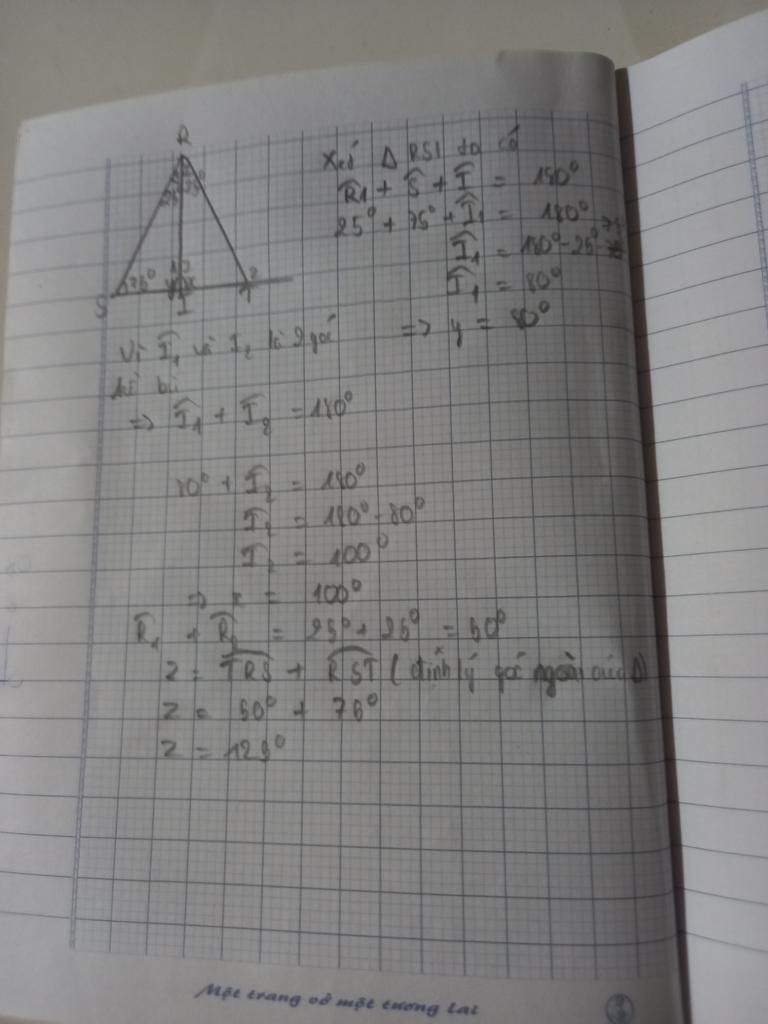 R
25° 25°
S 75° I T 2
Xét Δ RSI ta có
R̂1 + Ŝ + Î = 180°
25° + 75° + Î1 = 180°
Î1 = 180° - 25° - 75
Î1 = 80°
=> y = 80°
Vì Î1 và I2 là 2 góc
kề bù
=> Î1 + Î2 = 180°
80° + Î2 = 180°
Î2 = 180° - 80°
Î2 = 100°
=> x = 100°
R̂1 + R̂2 = 25° + 25° = 50°
z = TRS + RST (định lý góc ngoài của Δ)
z = 50° + 75°
z = 125°
Một trang vở một tương lai